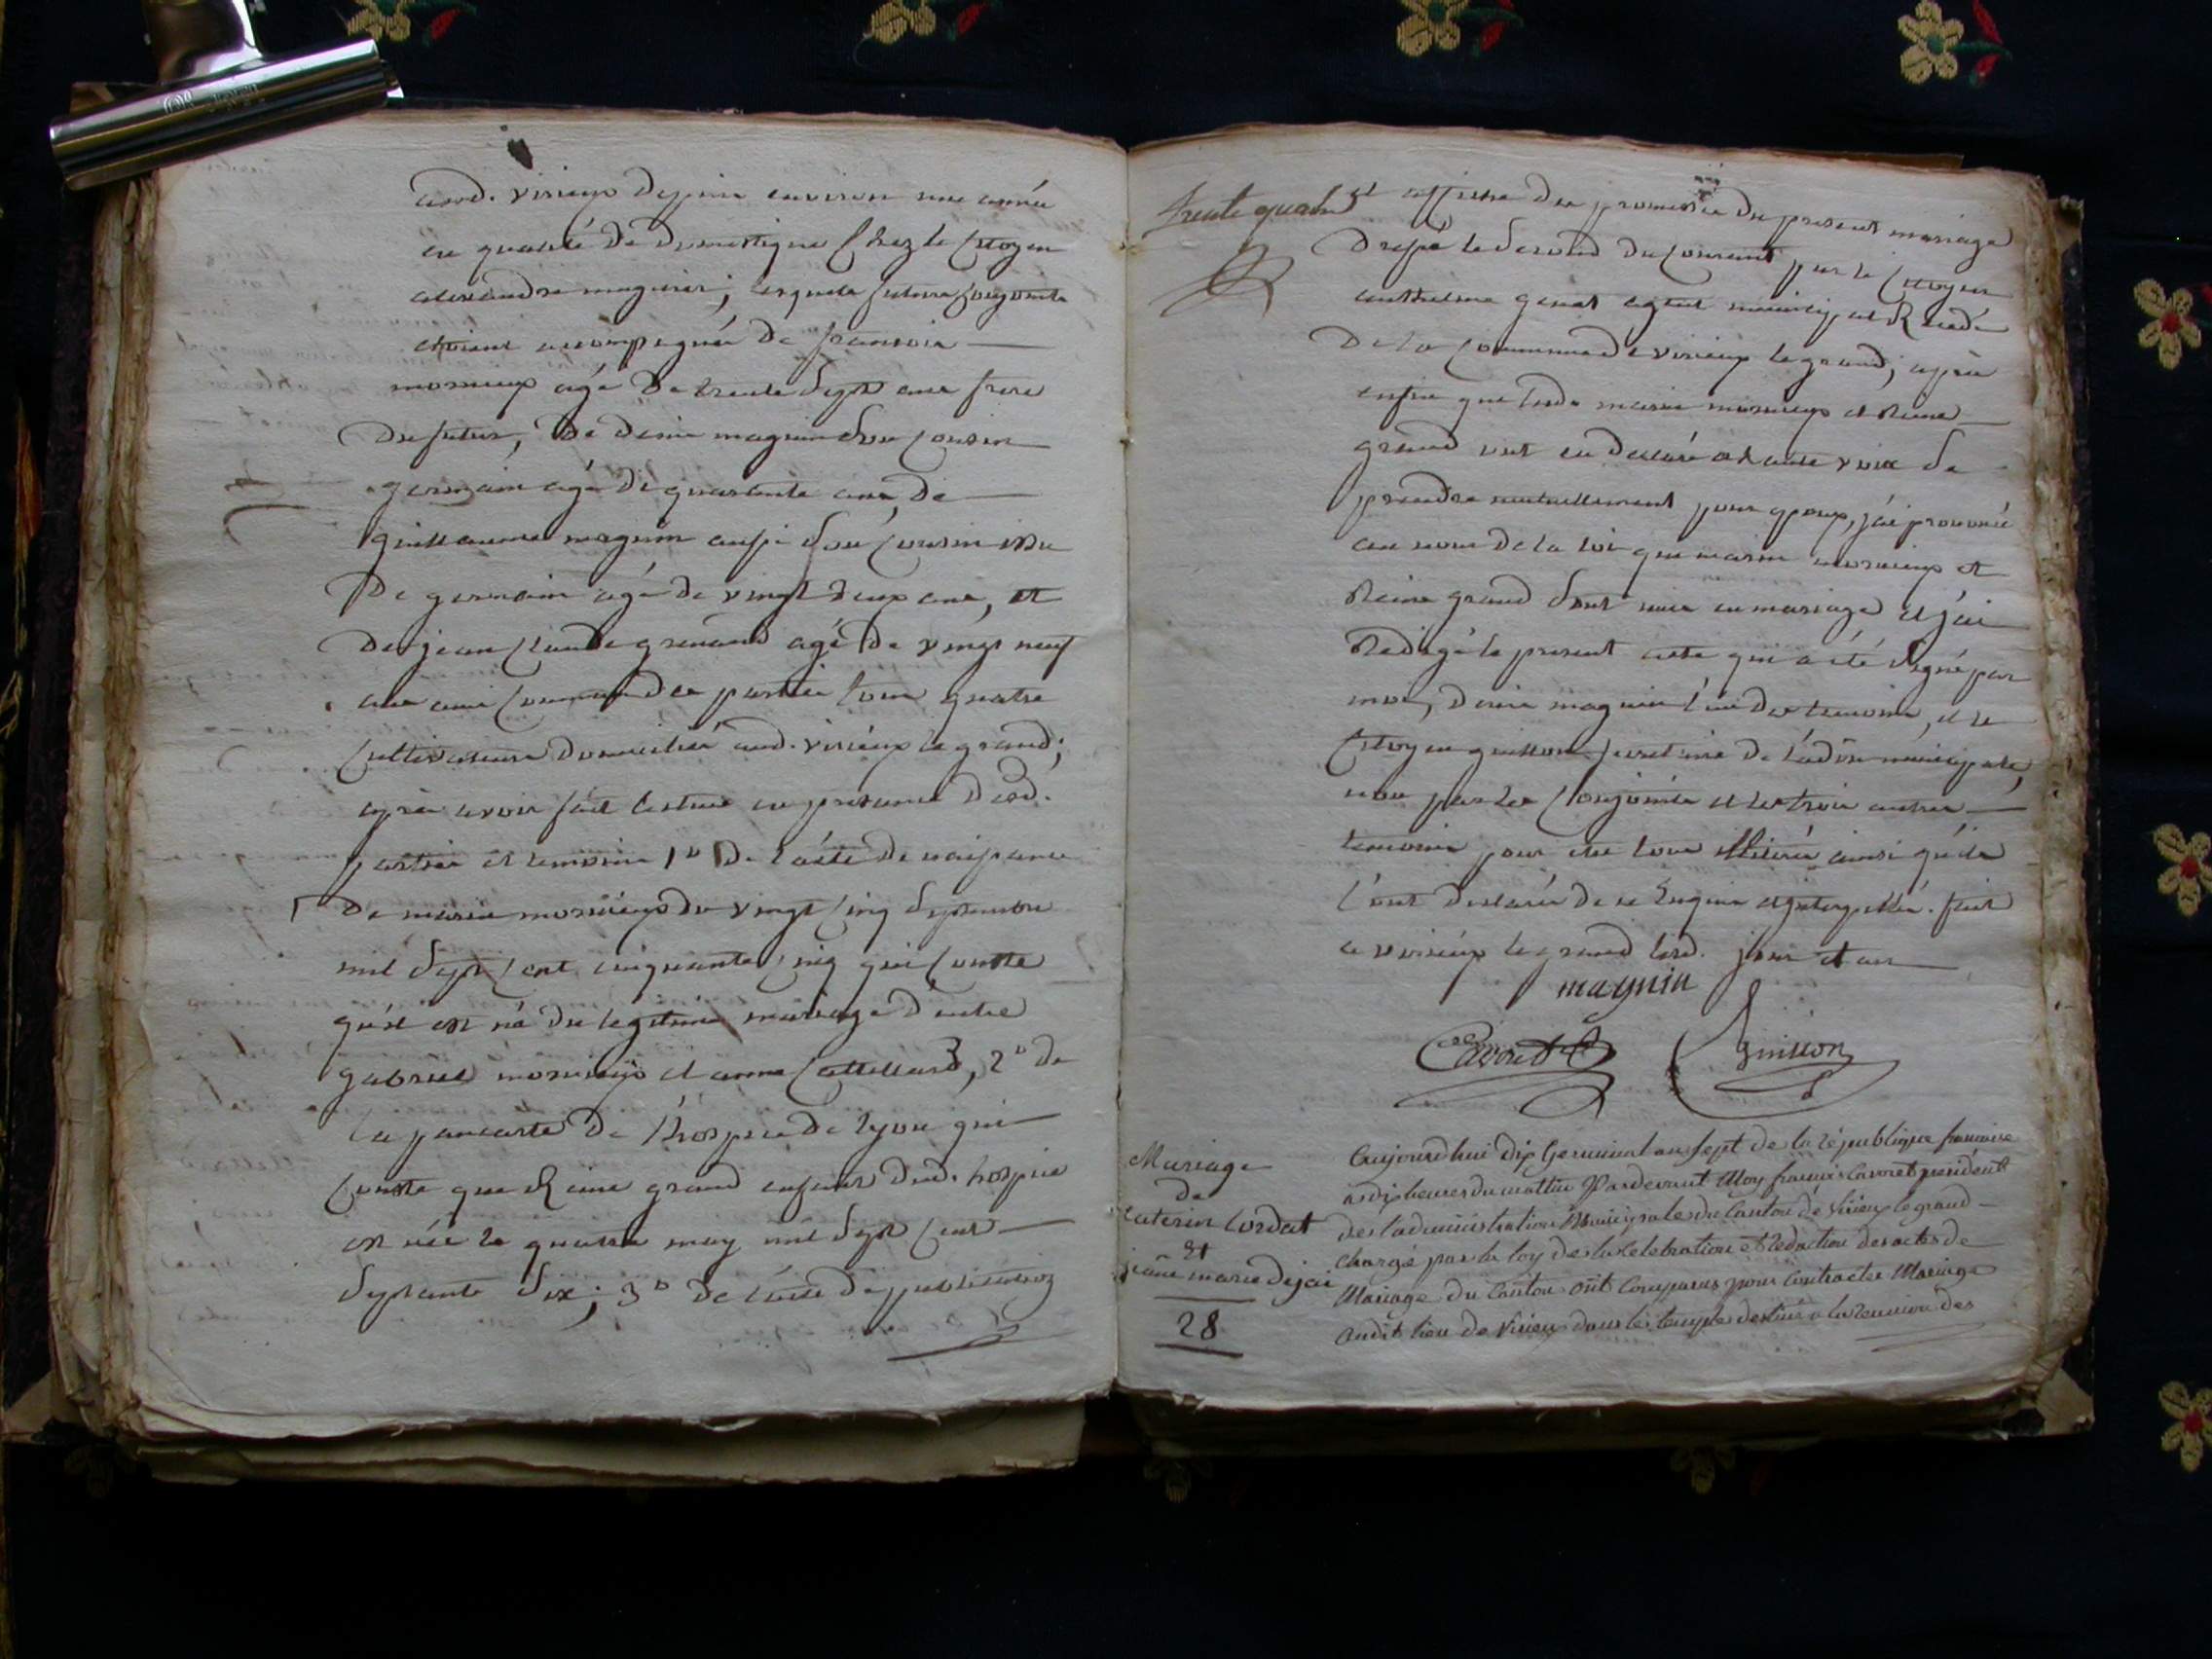 aud. virieux depuis environ une année
en qualité de domestique chez le citoyen
alexandre ; lesquels futurs conjoints
étoient accompagnés de francois
mornieux agé de trente sept ans frere
du futur, de denis magnin son cousin
germain agé de quarante ans, de
guillaume magnin aussi son cousin issu
de germain agé de vingt deux ans, et
de jean claude grenaud agé de vingt neuf
ans ami commun des parties tous quatre
cultivateurs domiciliés aud. virieux le grand;
après avoir fait lecture en presence desd.
parties et temoins 1° de l'acte de naissance
de marin mornieux du vingt cinq septembre
mil sept cent cinquante cinq qui conste
qu'il est né du legitime mariage d'entre
gabriel mornieux et anne cattelard, 2° de
la pancarte de l'hospice de lyon qui
conste que Reine grand enfant dud. hospice
est née le quatre may mil sept cent
septante six; 3° de l'acte de publication
trente quatre
et affiche des promesses du present mariage
dressé le second du courant par le citoyen
anthelme genet agent municipal
de la commune de virieux le grand; après
enfin que lesd. marin mornieux et Reine
grand ont eu declaré a haute voix se
prendre mutuellement pour epoux, j'ai prononcé
au nom de la loi que marin mornieux et
Reine grand sont unis en mariage et j'ai
Redigé le present acte qui a été signé par
moi, denis magnin l'un des temoins, et le
citoyen guillon secretaire de l'adon municipale,
non par les conjoints et les trois autres
temoins pour etre tous illiterés ainsi qu'ils
l'ont declaré de ce enquis et interpellés. fait
a virieux le grand lesd. jour et an
magnin
Cavoret guillon
Mariage
de
caterin cordat
et
jeane marie dejai
28
Aujourdhui dix Germinal an sept de la république francaise
a dix heures du mattin Pardevant Moy francois Cavoret president
de l'administration Municipale du Canton de Virieu le grand
chargé par la loy de la Celebration et redaction des actes de
Mariage du Canton ont Comparus pour Contracter Mariage
audit lieu de Virieu dans le temple destiné a la reunion des